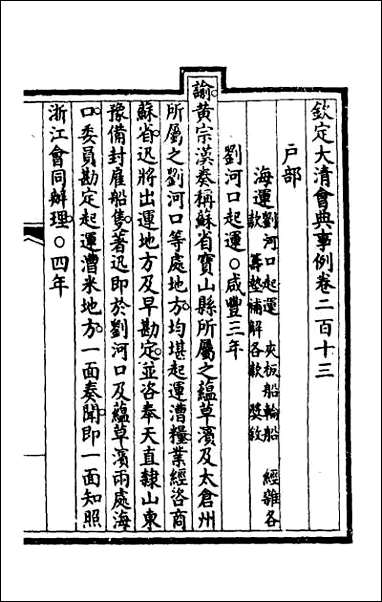 欽定大清會典事例卷二百十三
戶部
海運劉河口起運 夾板船輪船 經雜各
款 籌墊補解各款 獎敘
劉河口起運○咸豐三年
諭黃宗漢奏稱蘇省寶山縣所屬之蕰草濱及太倉州
所屬之劉河口等處地方均堪起運漕糧業經咨商
蘇省迅將出運地方及早勘定並咨奉天直隸山東
豫備封雇船隻著迅即於劉河口及蕰草濱兩處海
口委員勘定起運漕米地方一面奏聞即一面知照
浙江會同辦理○四年